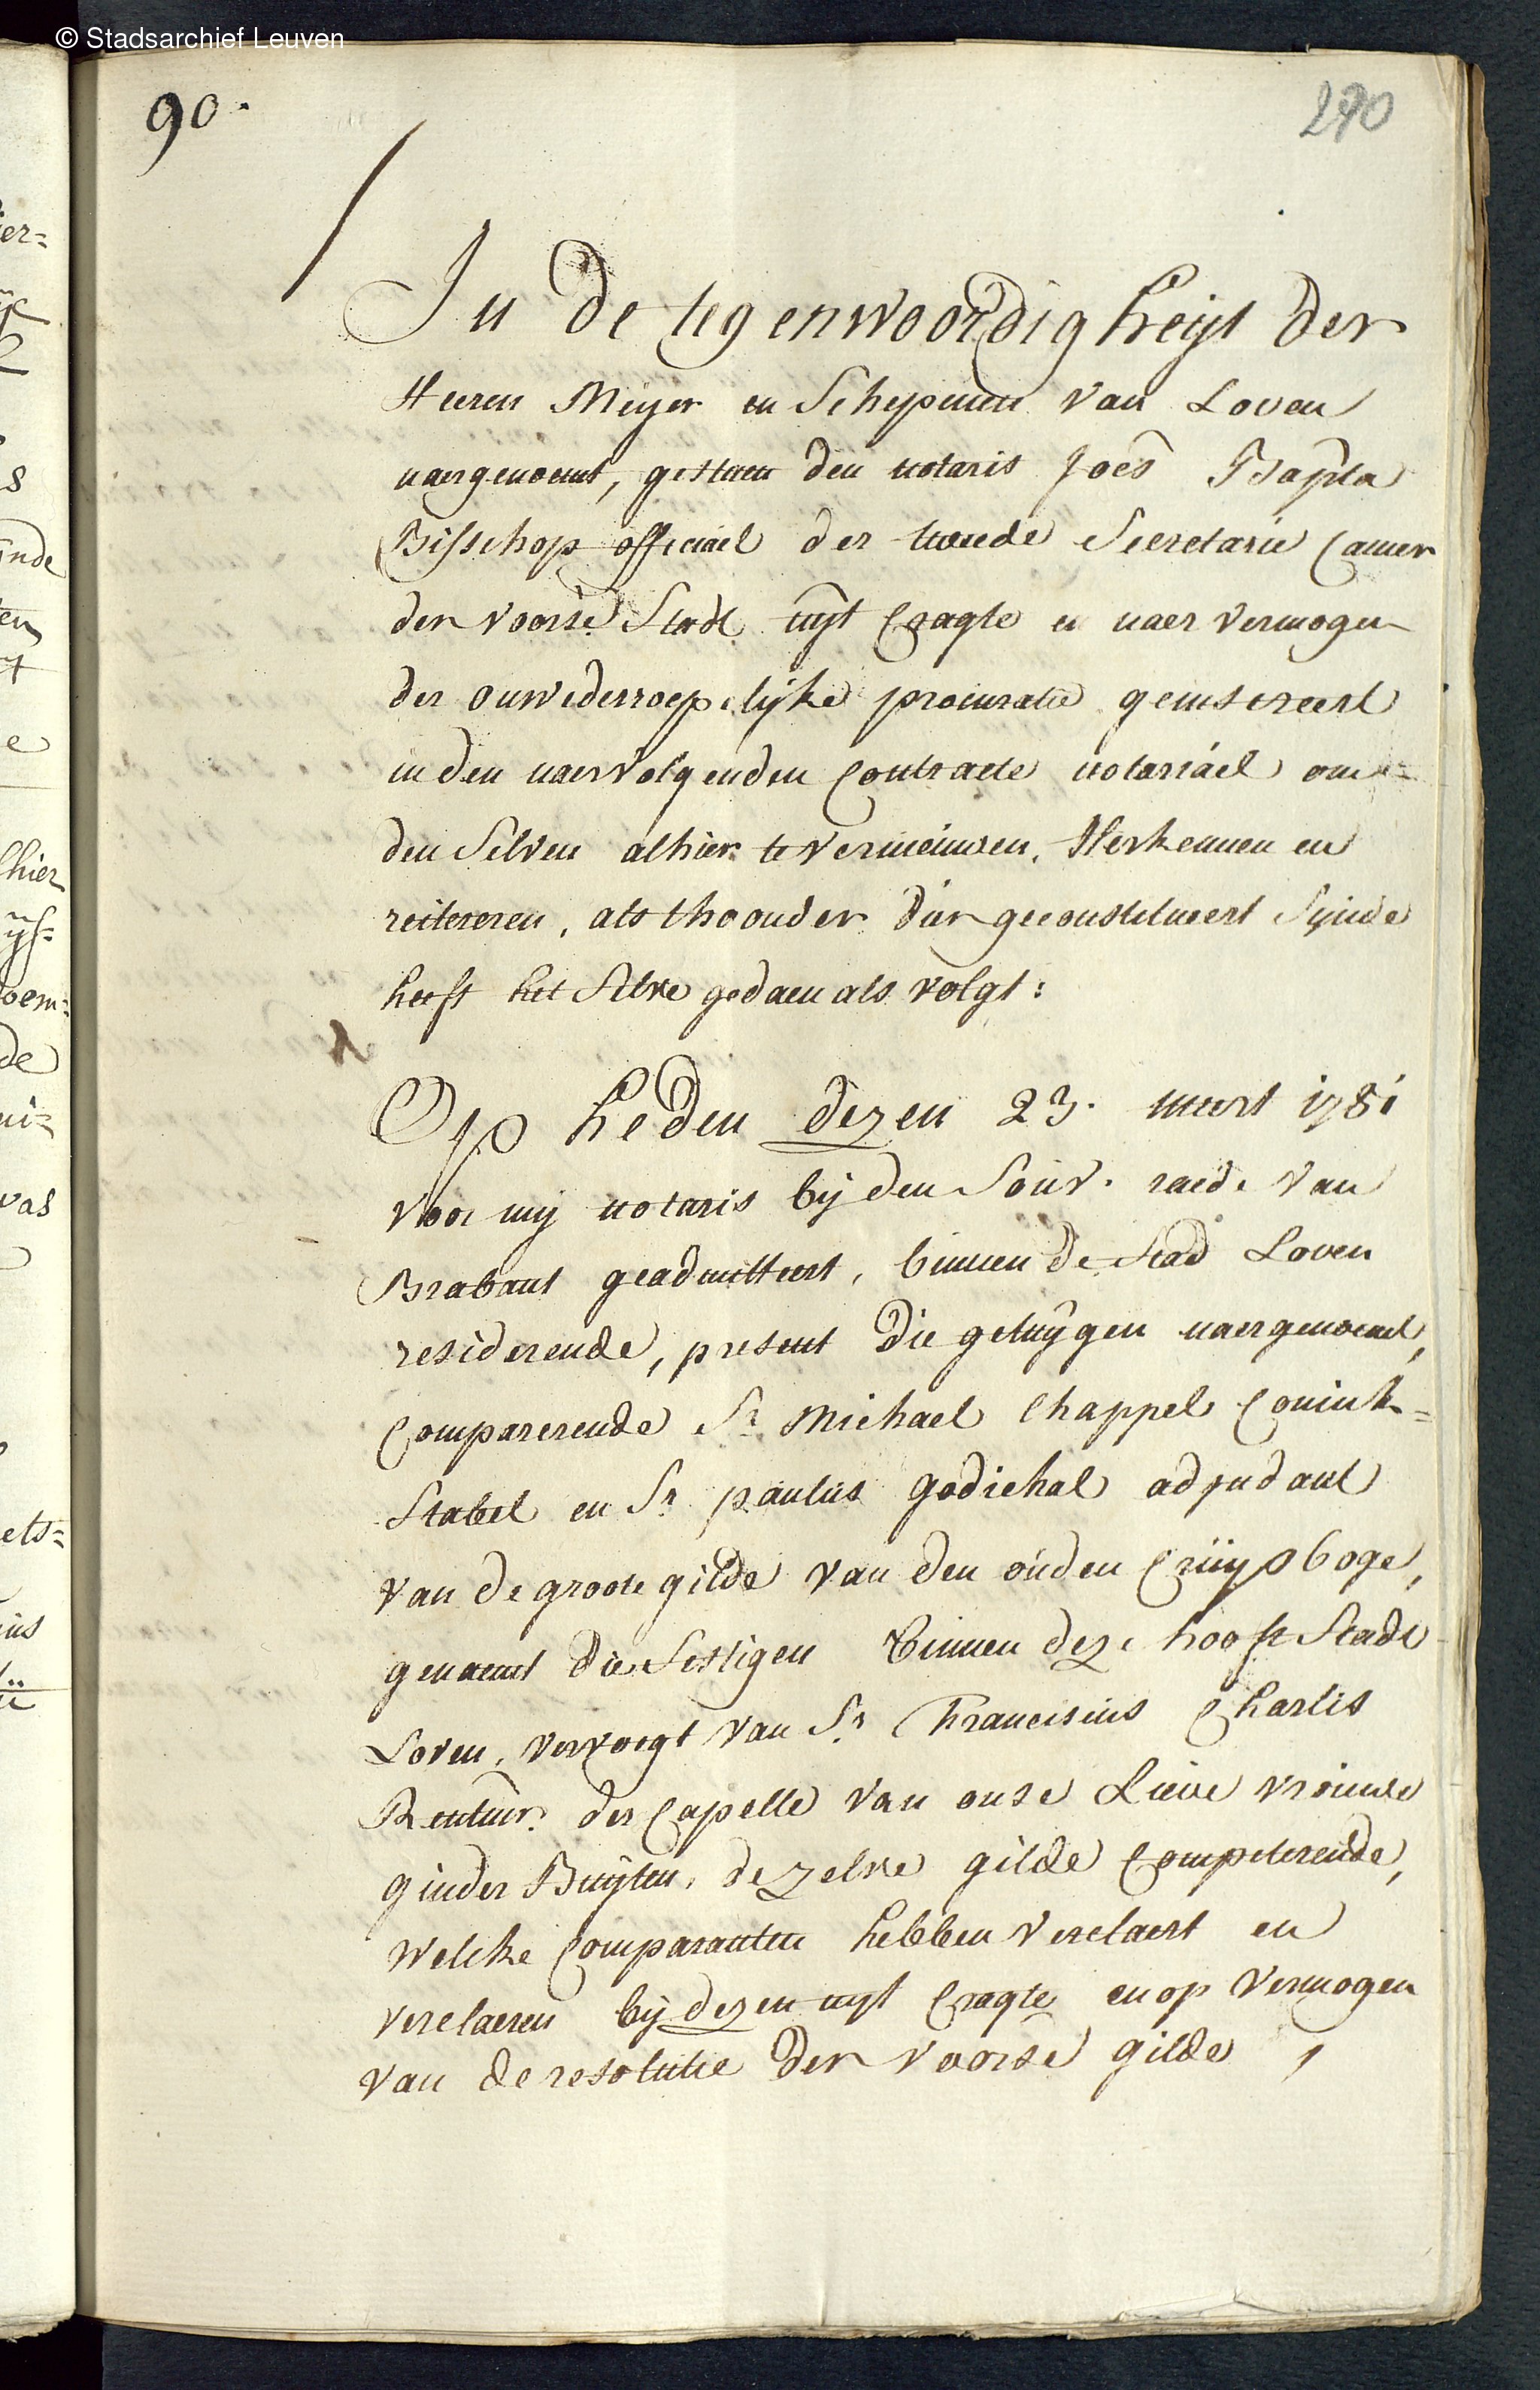 © Stadsarchief Leuven
90.
290
In de tegenwoordigheijt der
Heeren Meijer en Schepenen van Loven
naergenoemt, gestaen den notaris Joês Bapta
Bisschop officiael der tweede Secretarie Camer
der voorse. Stadt uijt Cragte en naer vermogen
der onwederroepelijke procuratie geinsereert
in den naervolgenden Contracte notariael om
den Selven alhier te vernieuwen, Herkennen en
reitereren, als thoonder dier geconstitueert Sijnde
heeft het Selve gedaen als volgt:
Op heden dezen 23. meert 1781
voor mij notaris bij den Souv. raede van
Brabant geadmitteert, binnen de Stad Loven
residerende, present die getuijgen naergenoemt,
Comparerende Sr. Michael Chappel Conink=
Stabel en Sr. paulus godichal adjudant
van de groote gilde van den ouden Cruijsboge,
genaemt die Sestigen binnen deze hooft Stadt
Loven, vervoegt van Sr. Franciscus Charlis
Rentmr. der Capelle van onse Lieve vrouwe
ginder Buijten, dezelve gilde Competerende,
Welcke Comparanten hebben verclaert en
verclaeren bij dezen uijt Cragte en op vermogen
van de resolutie der voorse gilde,